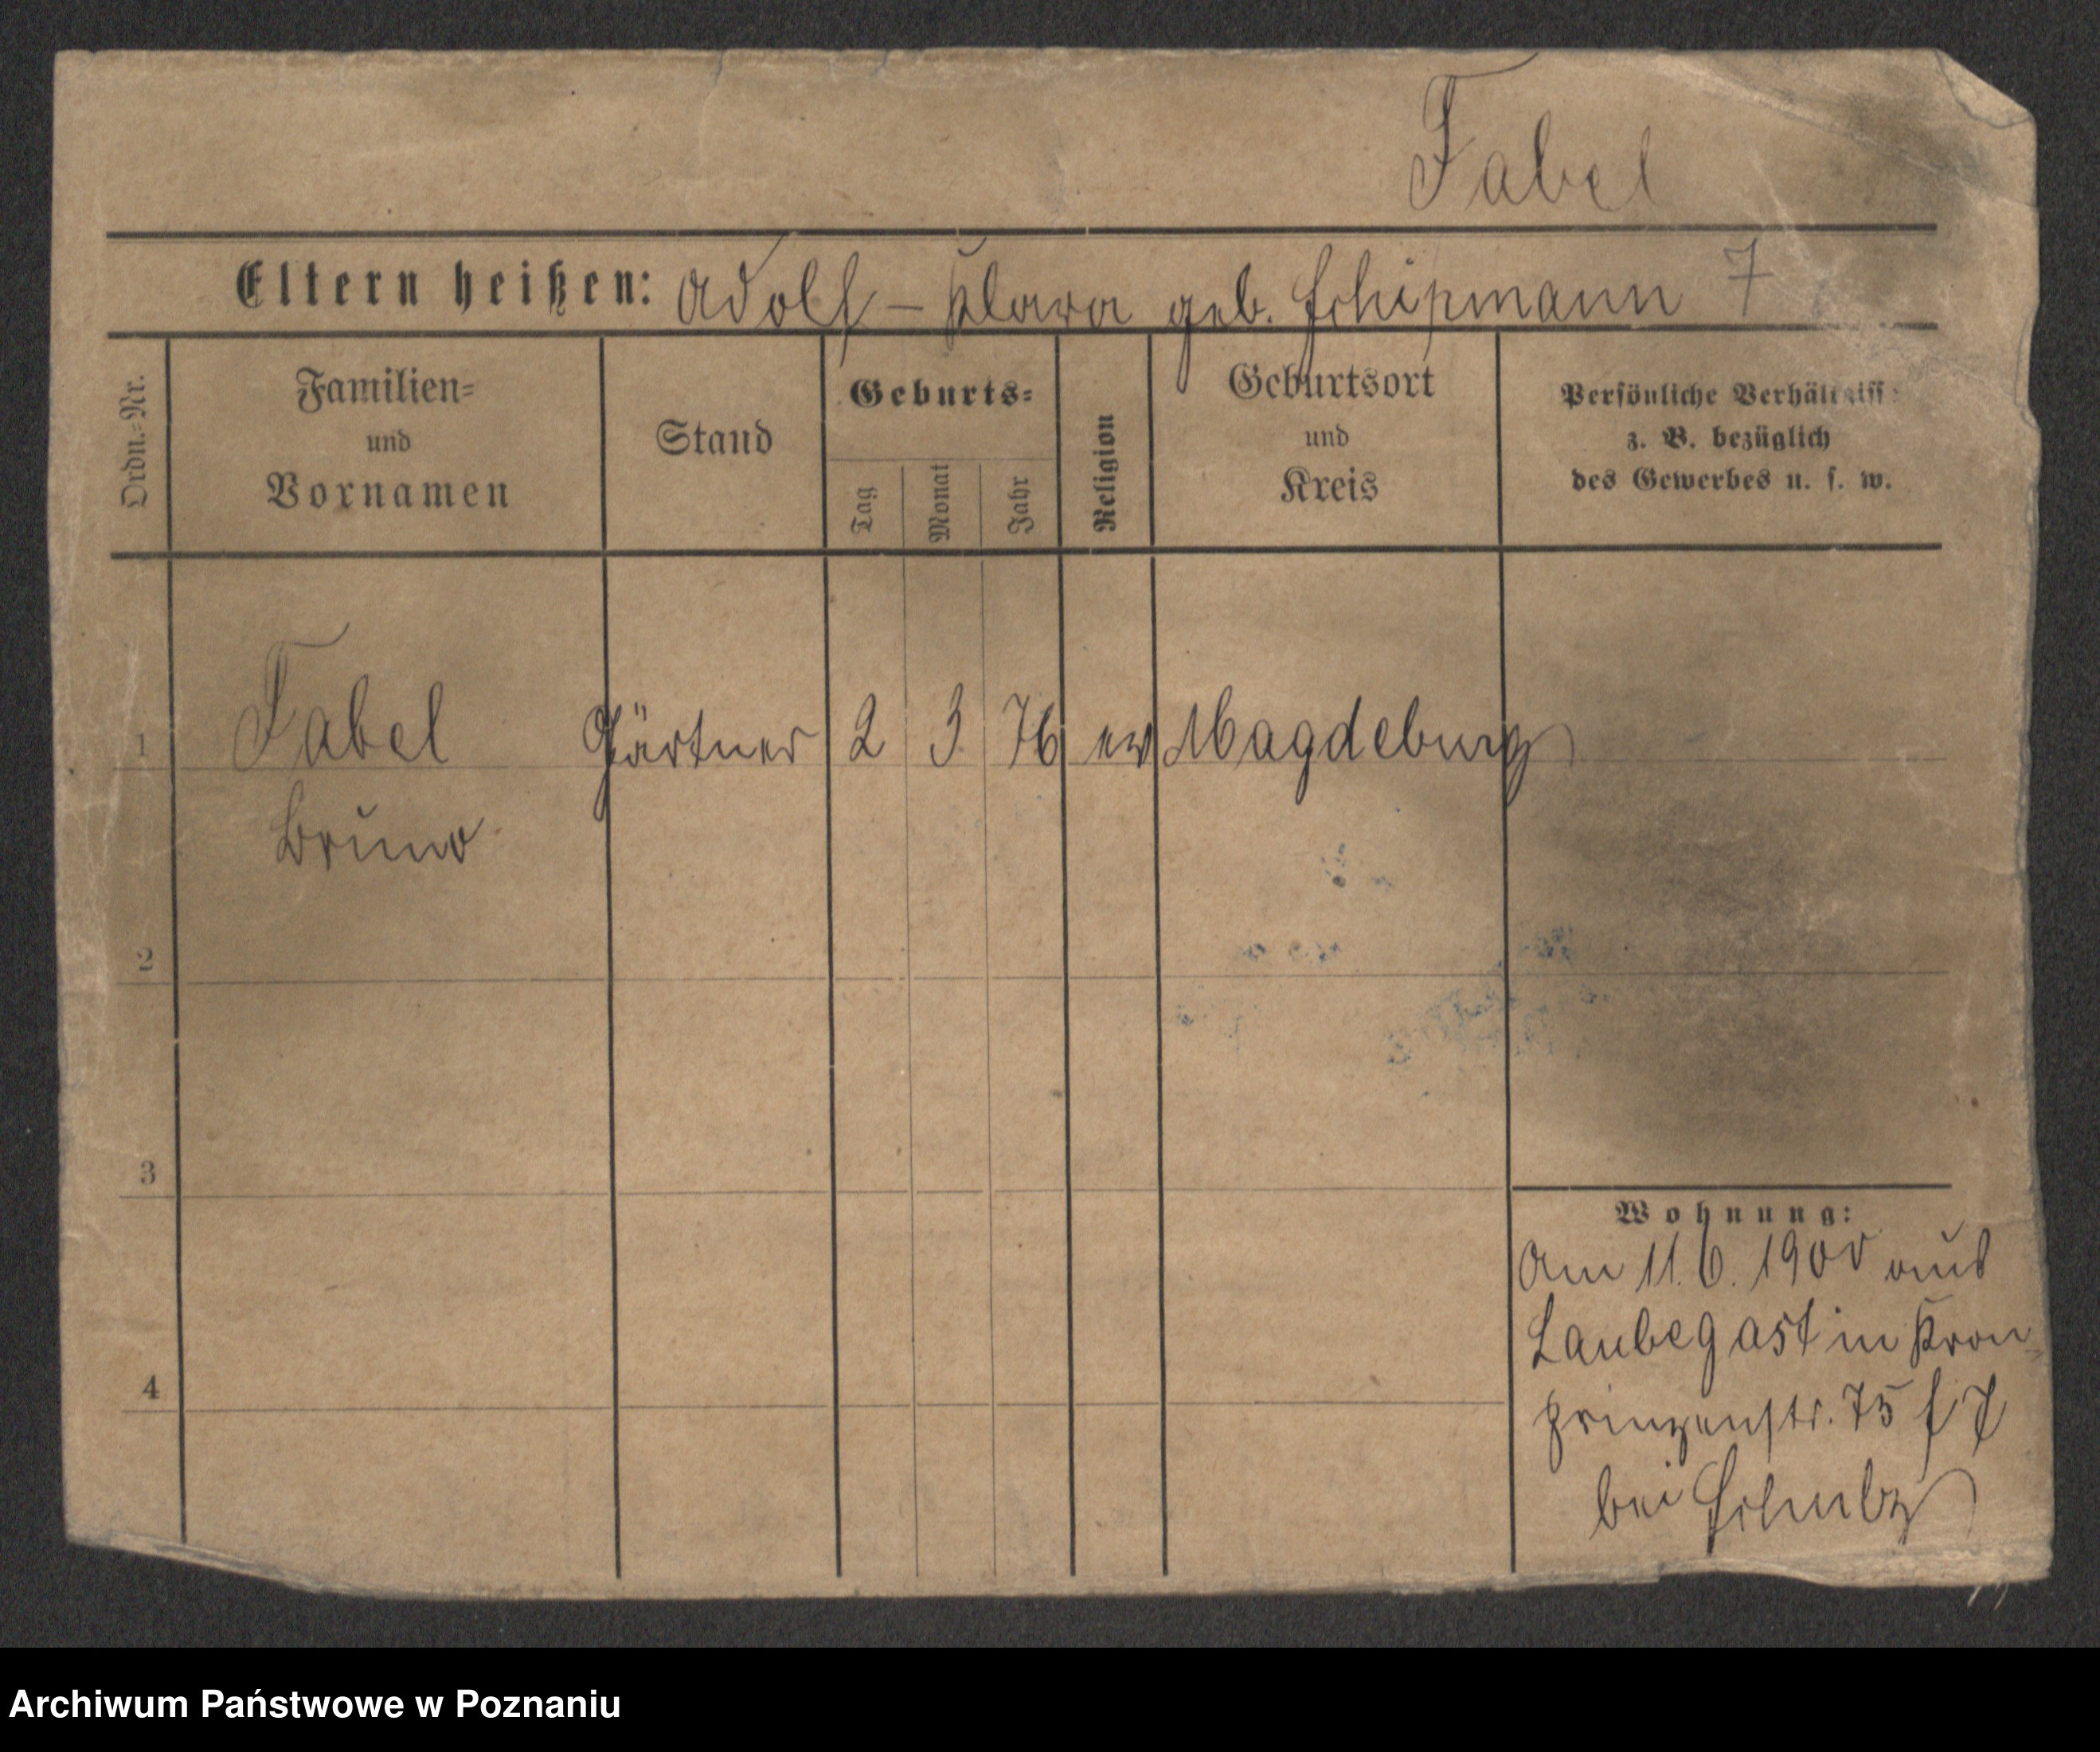 Fabel
Eltern heißen: Adolf – Klara geb. Schipmann 7
Ordn.-Nr.
Familien-
und
Vornamen
Stand
Geburts-
Tag
Monat
Jahr
Religion
Geburtsort
und
Kreis
Persönliche Verhältniss
z. B. bezüglich
des Gewerbes u. s. w.
1 Fabel Gärtner 2 3 76 ev Magdeburg
Bruno
2
3
4
Wohnung:
Am 11. 6. 1900 aus
Laubegast in Kron-
prinzenstr. 75
bei Schulz
Archiwum Państwowe w Poznaniu